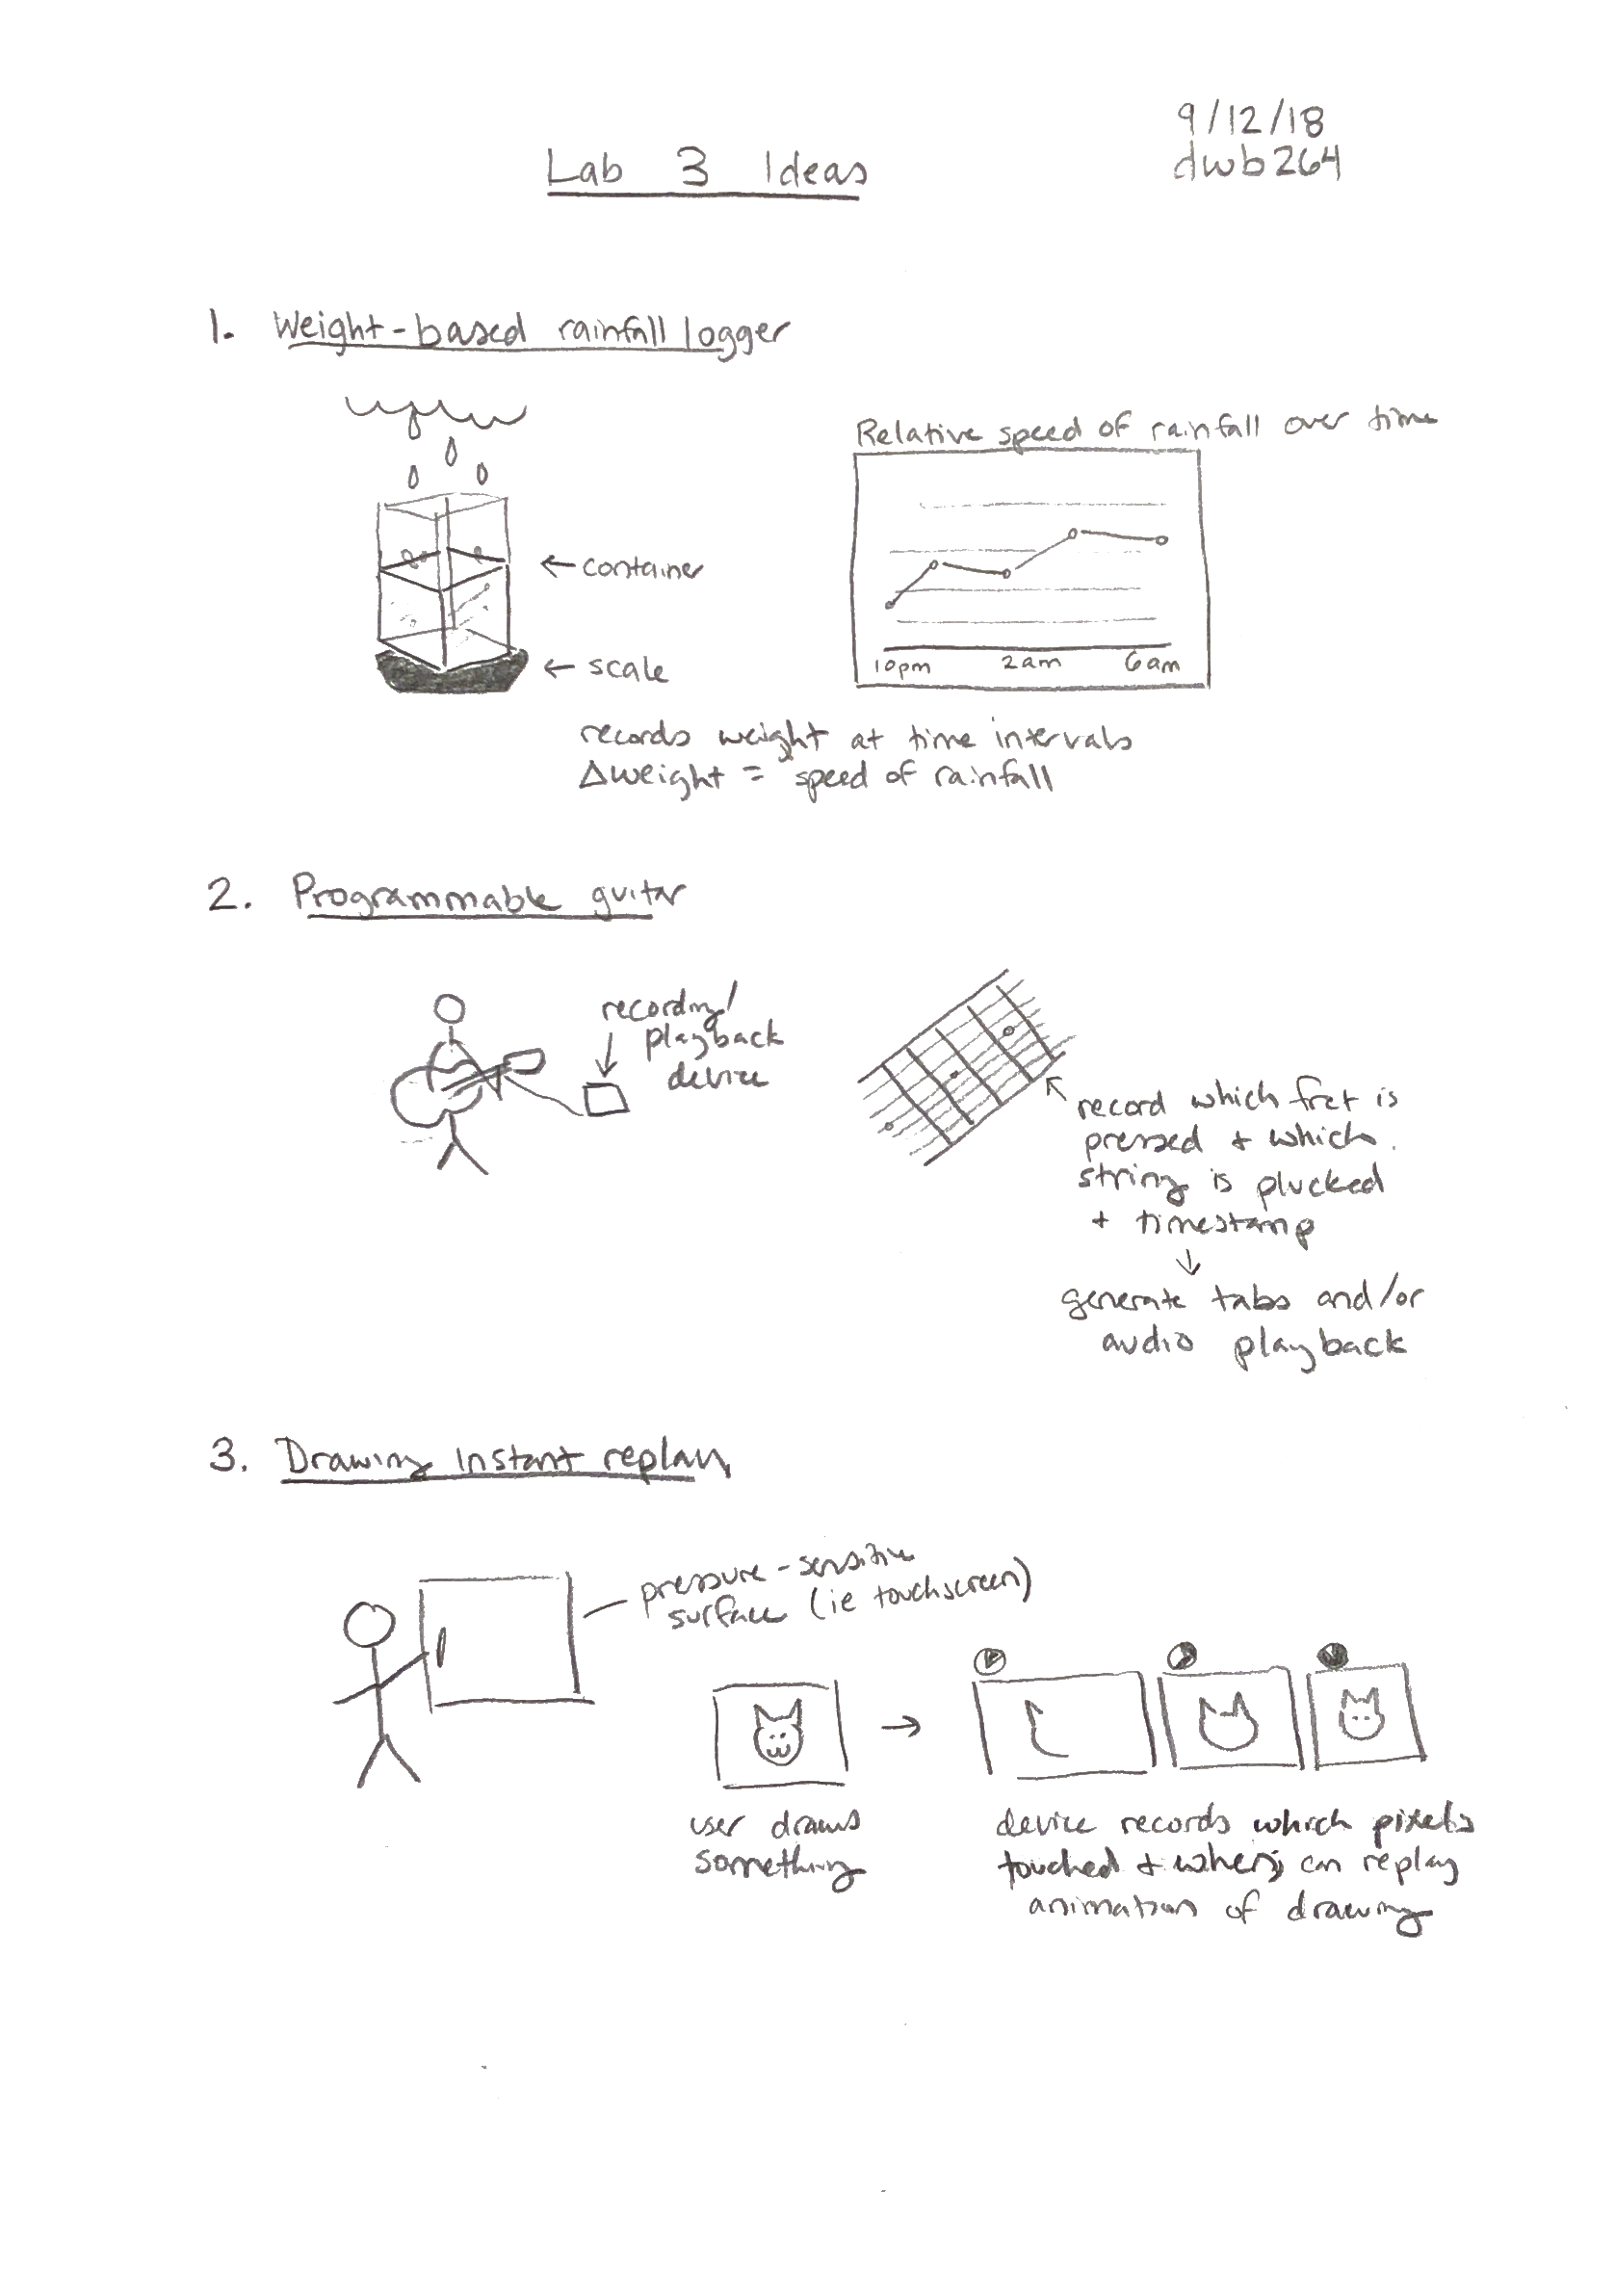 9/12/18
dwb264
Lab 3 Ideas
1. Weight-based rainfall logger
Relative speed of rainfall over time
← container
← scale
10pm 2am 6am
records weight at time intervals
Δweight = speed of rainfall
2. Programmable guitar
recording/
playback
device
record which fret is
pressed + which
string is plucked
+ timestamp
↓
generate tabs and/or
audio playback
3. Drawing instant replay
pressure-sensitive
surface (ie touchscreen)
→
user draws
something
device records which pixels
touched + when; can replay
animation of drawing